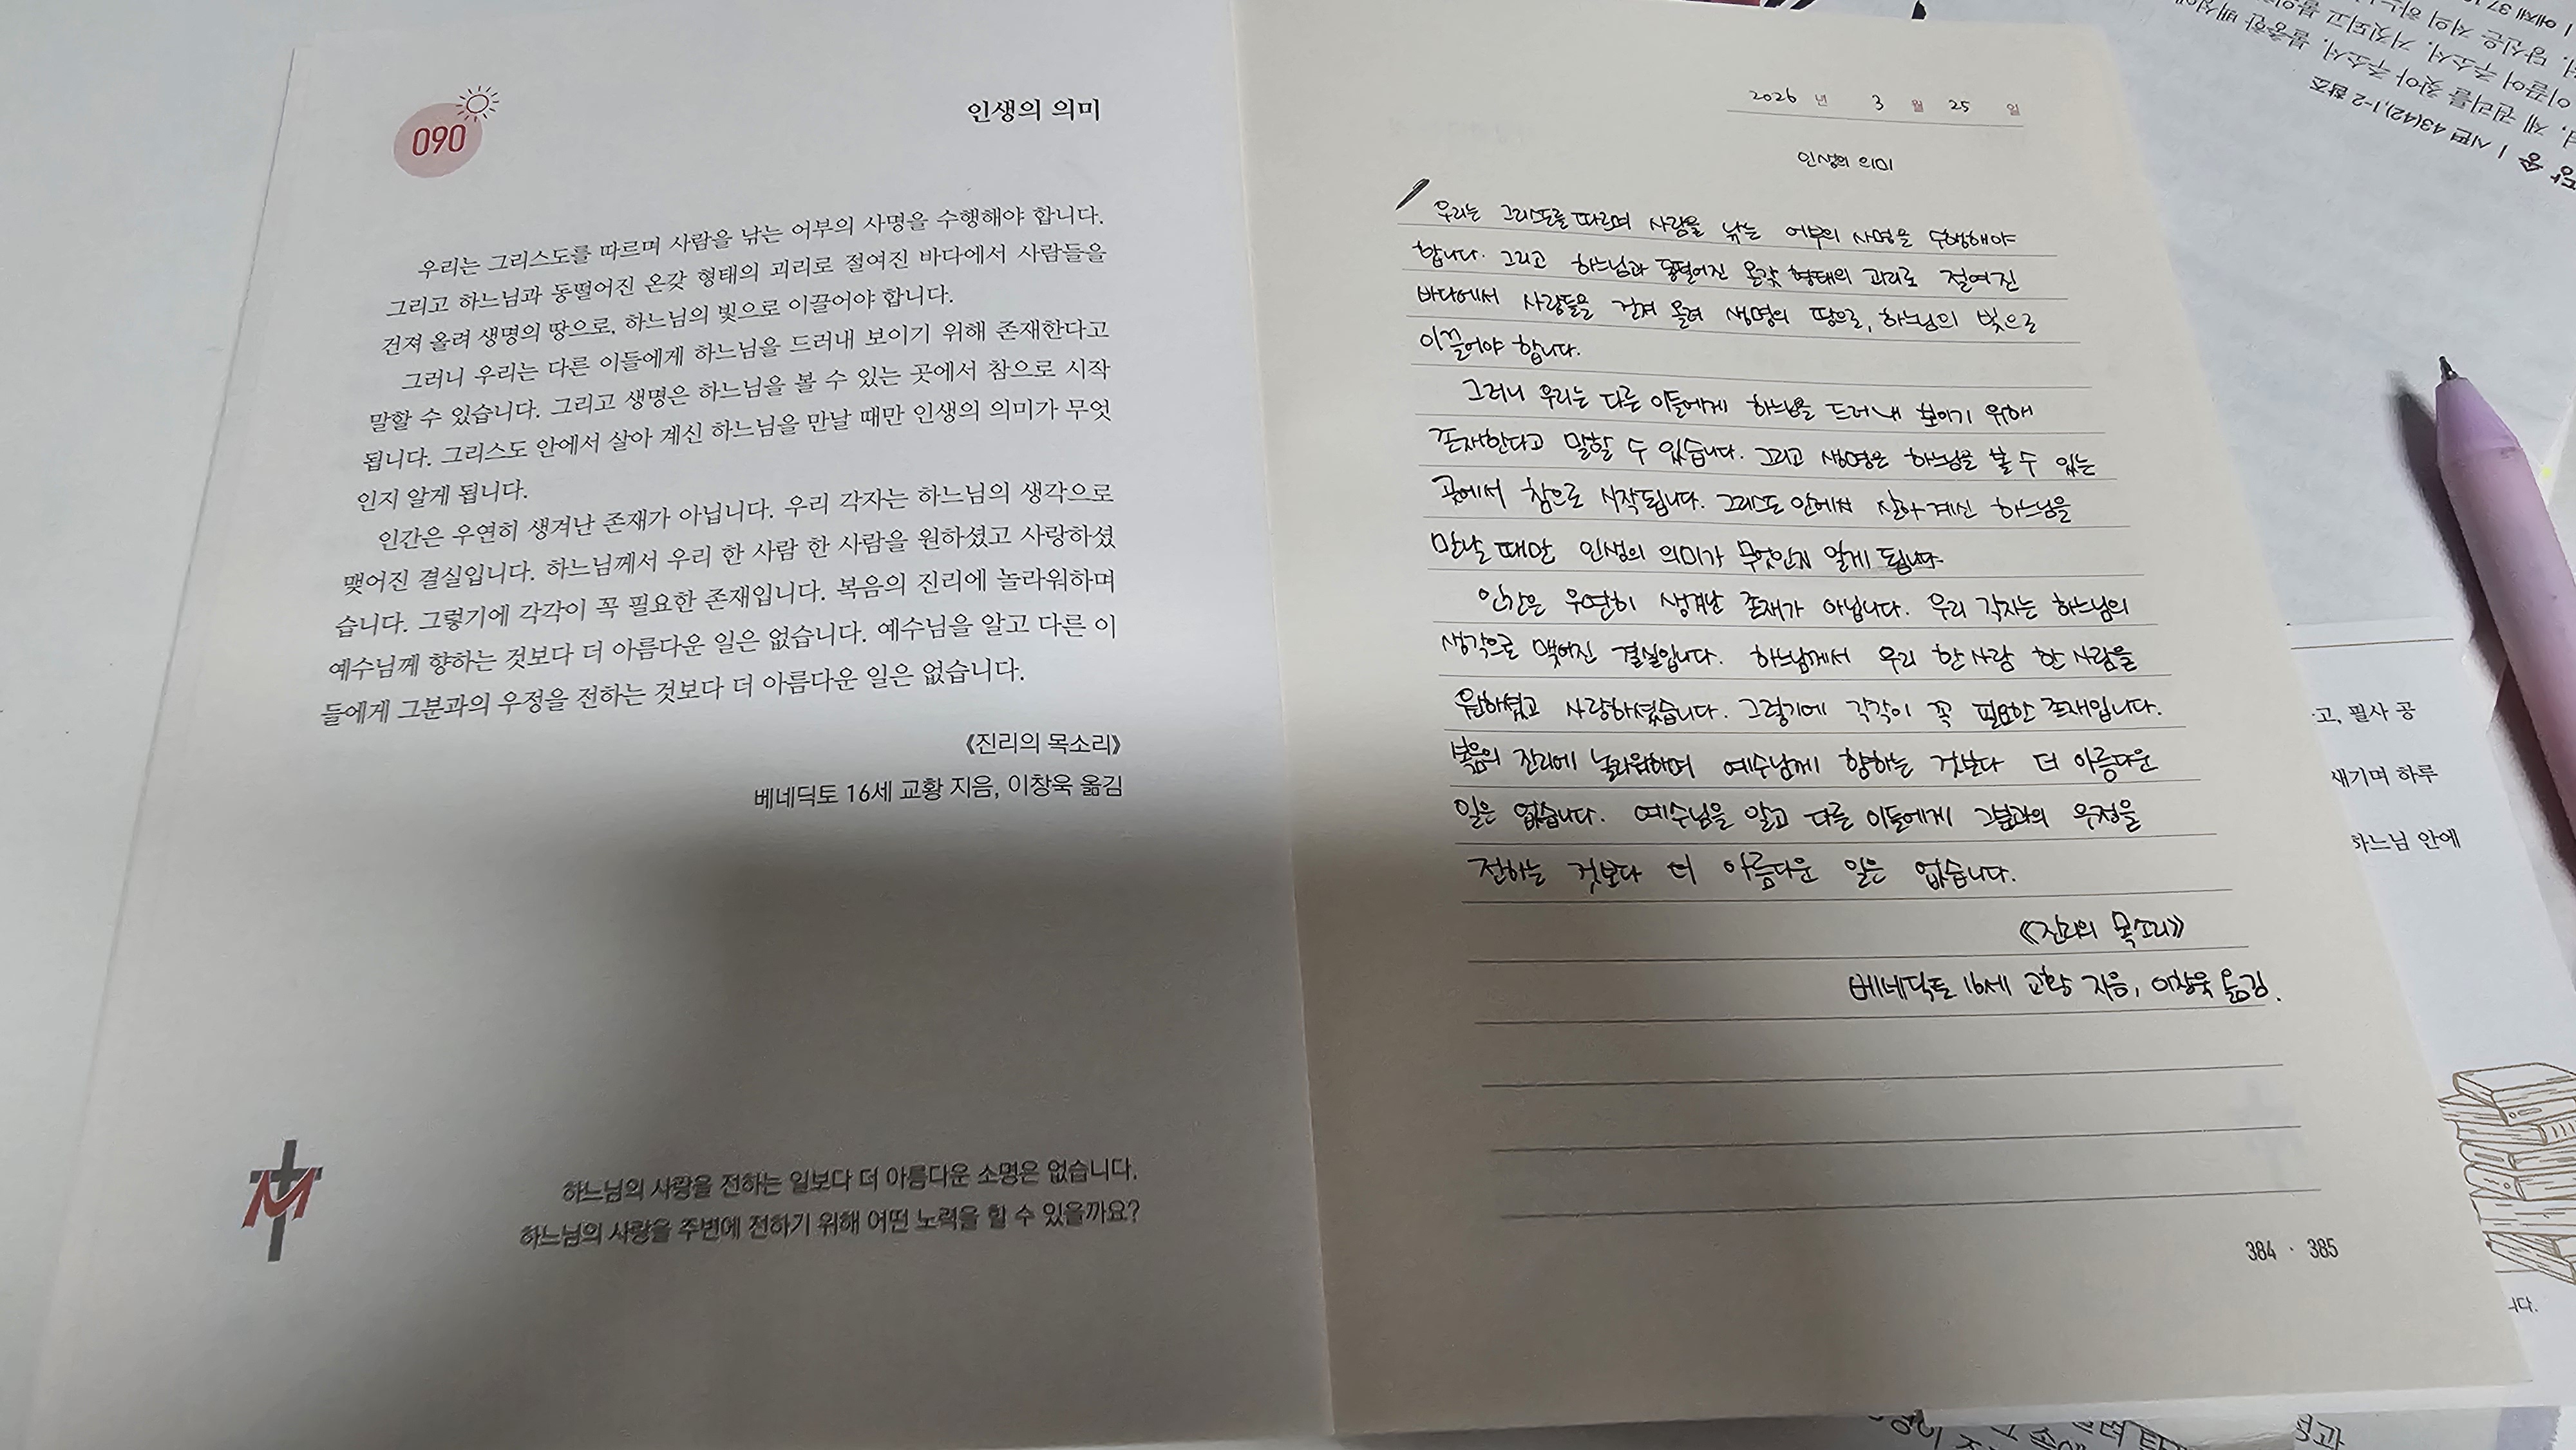 090
인생의 의미
우리는 그리스도를 따르며 사람을 낚는 어부의 사명을 수행해야 합니다.
그리고 하느님과 동떨어진 온갖 형태의 괴리로 절여진 바다에서 사람들을
건져 올려 생명의 땅으로, 하느님의 빛으로 이끌어야 합니다.
그러니 우리는 다른 이들에게 하느님을 드러내 보이기 위해 존재한다고
말할 수 있습니다. 그리고 생명은 하느님을 볼 수 있는 곳에서 참으로 시작
됩니다. 그리스도 안에서 살아 계신 하느님을 만날 때만 인생의 의미가 무엇
인지 알게 됩니다.
인간은 우연히 생겨난 존재가 아닙니다. 우리 각자는 하느님의 생각으로
맺어진 결실입니다. 하느님께서 우리 한 사람 한 사람을 원하셨고 사랑하셨
습니다. 그렇기에 각각이 꼭 필요한 존재입니다. 복음의 진리에 놀라워하며
예수님께 향하는 것보다 더 아름다운 일은 없습니다. 예수님을 알고 다른 이
들에게 그분과의 우정을 전하는 것보다 더 아름다운 일은 없습니다.
《진리의 목소리》
베네딕토 16세 교황 지음, 이창욱 옮김
하느님의 사랑을 전하는 일보다 더 아름다운 소명은 없습니다.
하느님의 사랑을 주변에 전하기 위해 어떤 노력을 할 수 있을까요?
2026 년 3 월 25 일
인생의 의미
우리는 그리스도를 따르며 사람을 낚는 어부의 사명을 수행해야
합니다. 그리고 하느님과 동떨어진 온갖 형태의 괴리로 절여진
바다에서 사람들을 건져 올려 생명의 땅으로, 하느님의 빛으로
이끌어야 합니다.
그러니 우리는 다른 이들에게 하느님을 드러내 보이기 위해
존재한다고 말할 수 있습니다. 그리고 생명은 하느님을 볼 수 있는
곳에서 참으로 시작됩니다. 그리스도 안에서 살아 계신 하느님을
만날 때만 인생의 의미가 무엇인지 알게 됩니다.
인간은 우연히 생겨난 존재가 아닙니다. 우리 각자는 하느님의
생각으로 맺어진 결실입니다. 하느님께서 우리 한 사람 한 사람을
원하셨고 사랑하셨습니다. 그렇기에 각각이 꼭 필요한 존재입니다.
복음의 진리에 놀라워하며 예수님께 향하는 것보다 더 아름다운
일은 없습니다. 예수님을 알고 다른 이들에게 그분과의 우정을
전하는 것보다 더 아름다운 일은 없습니다.
《진리의 목소리》
베네딕토 16세 교황 지음, 이창욱 옮김.
384 · 385
시편 43(42),1-2 참조
고, 필사 공
새기며 하루
하느님 안에
니다.